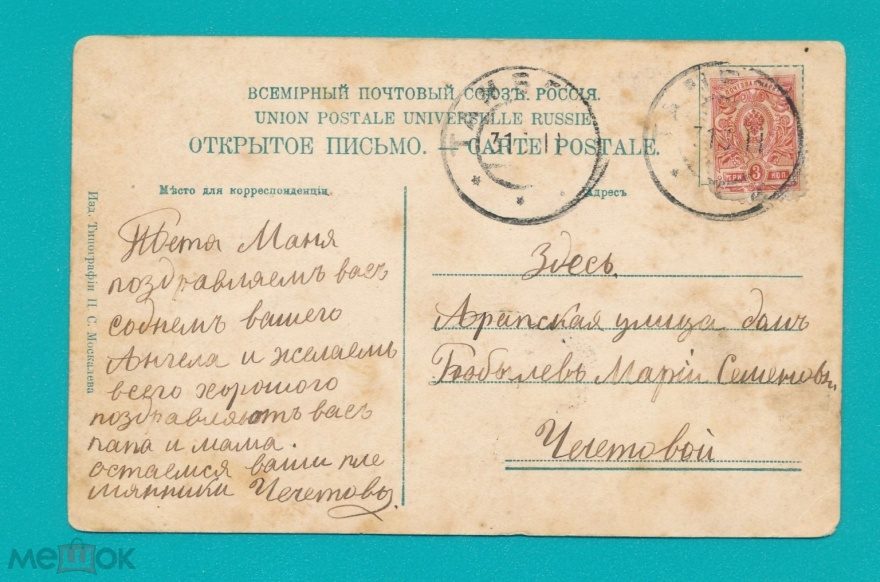 ВСЕМIРНЫЙ ПОЧТОВЫЙ СОЮЗЪ. РОССIЯ.
UNION POSTALE UNIVERSELLE RUSSIE.
ОТКРЫТОЕ ПИСЬМО. — CARTE POSTALE.
Мѣсто для корреспонденцiи.
Адресъ
Изд. Типографiи П. С. Москалева
Тета Маня
поздравляемъ васъ
соднемъ вашего
Ангела и желаемъ
всего хорошого
поздравляютъ васъ
папа и мама.
остаемся ваши пле
мянники Чечетовы
Здесь
Арапская улица домъ
Марiи Семеновы
Чечетовой
31
11
31
11
ТРИ 3 КОП
мешок